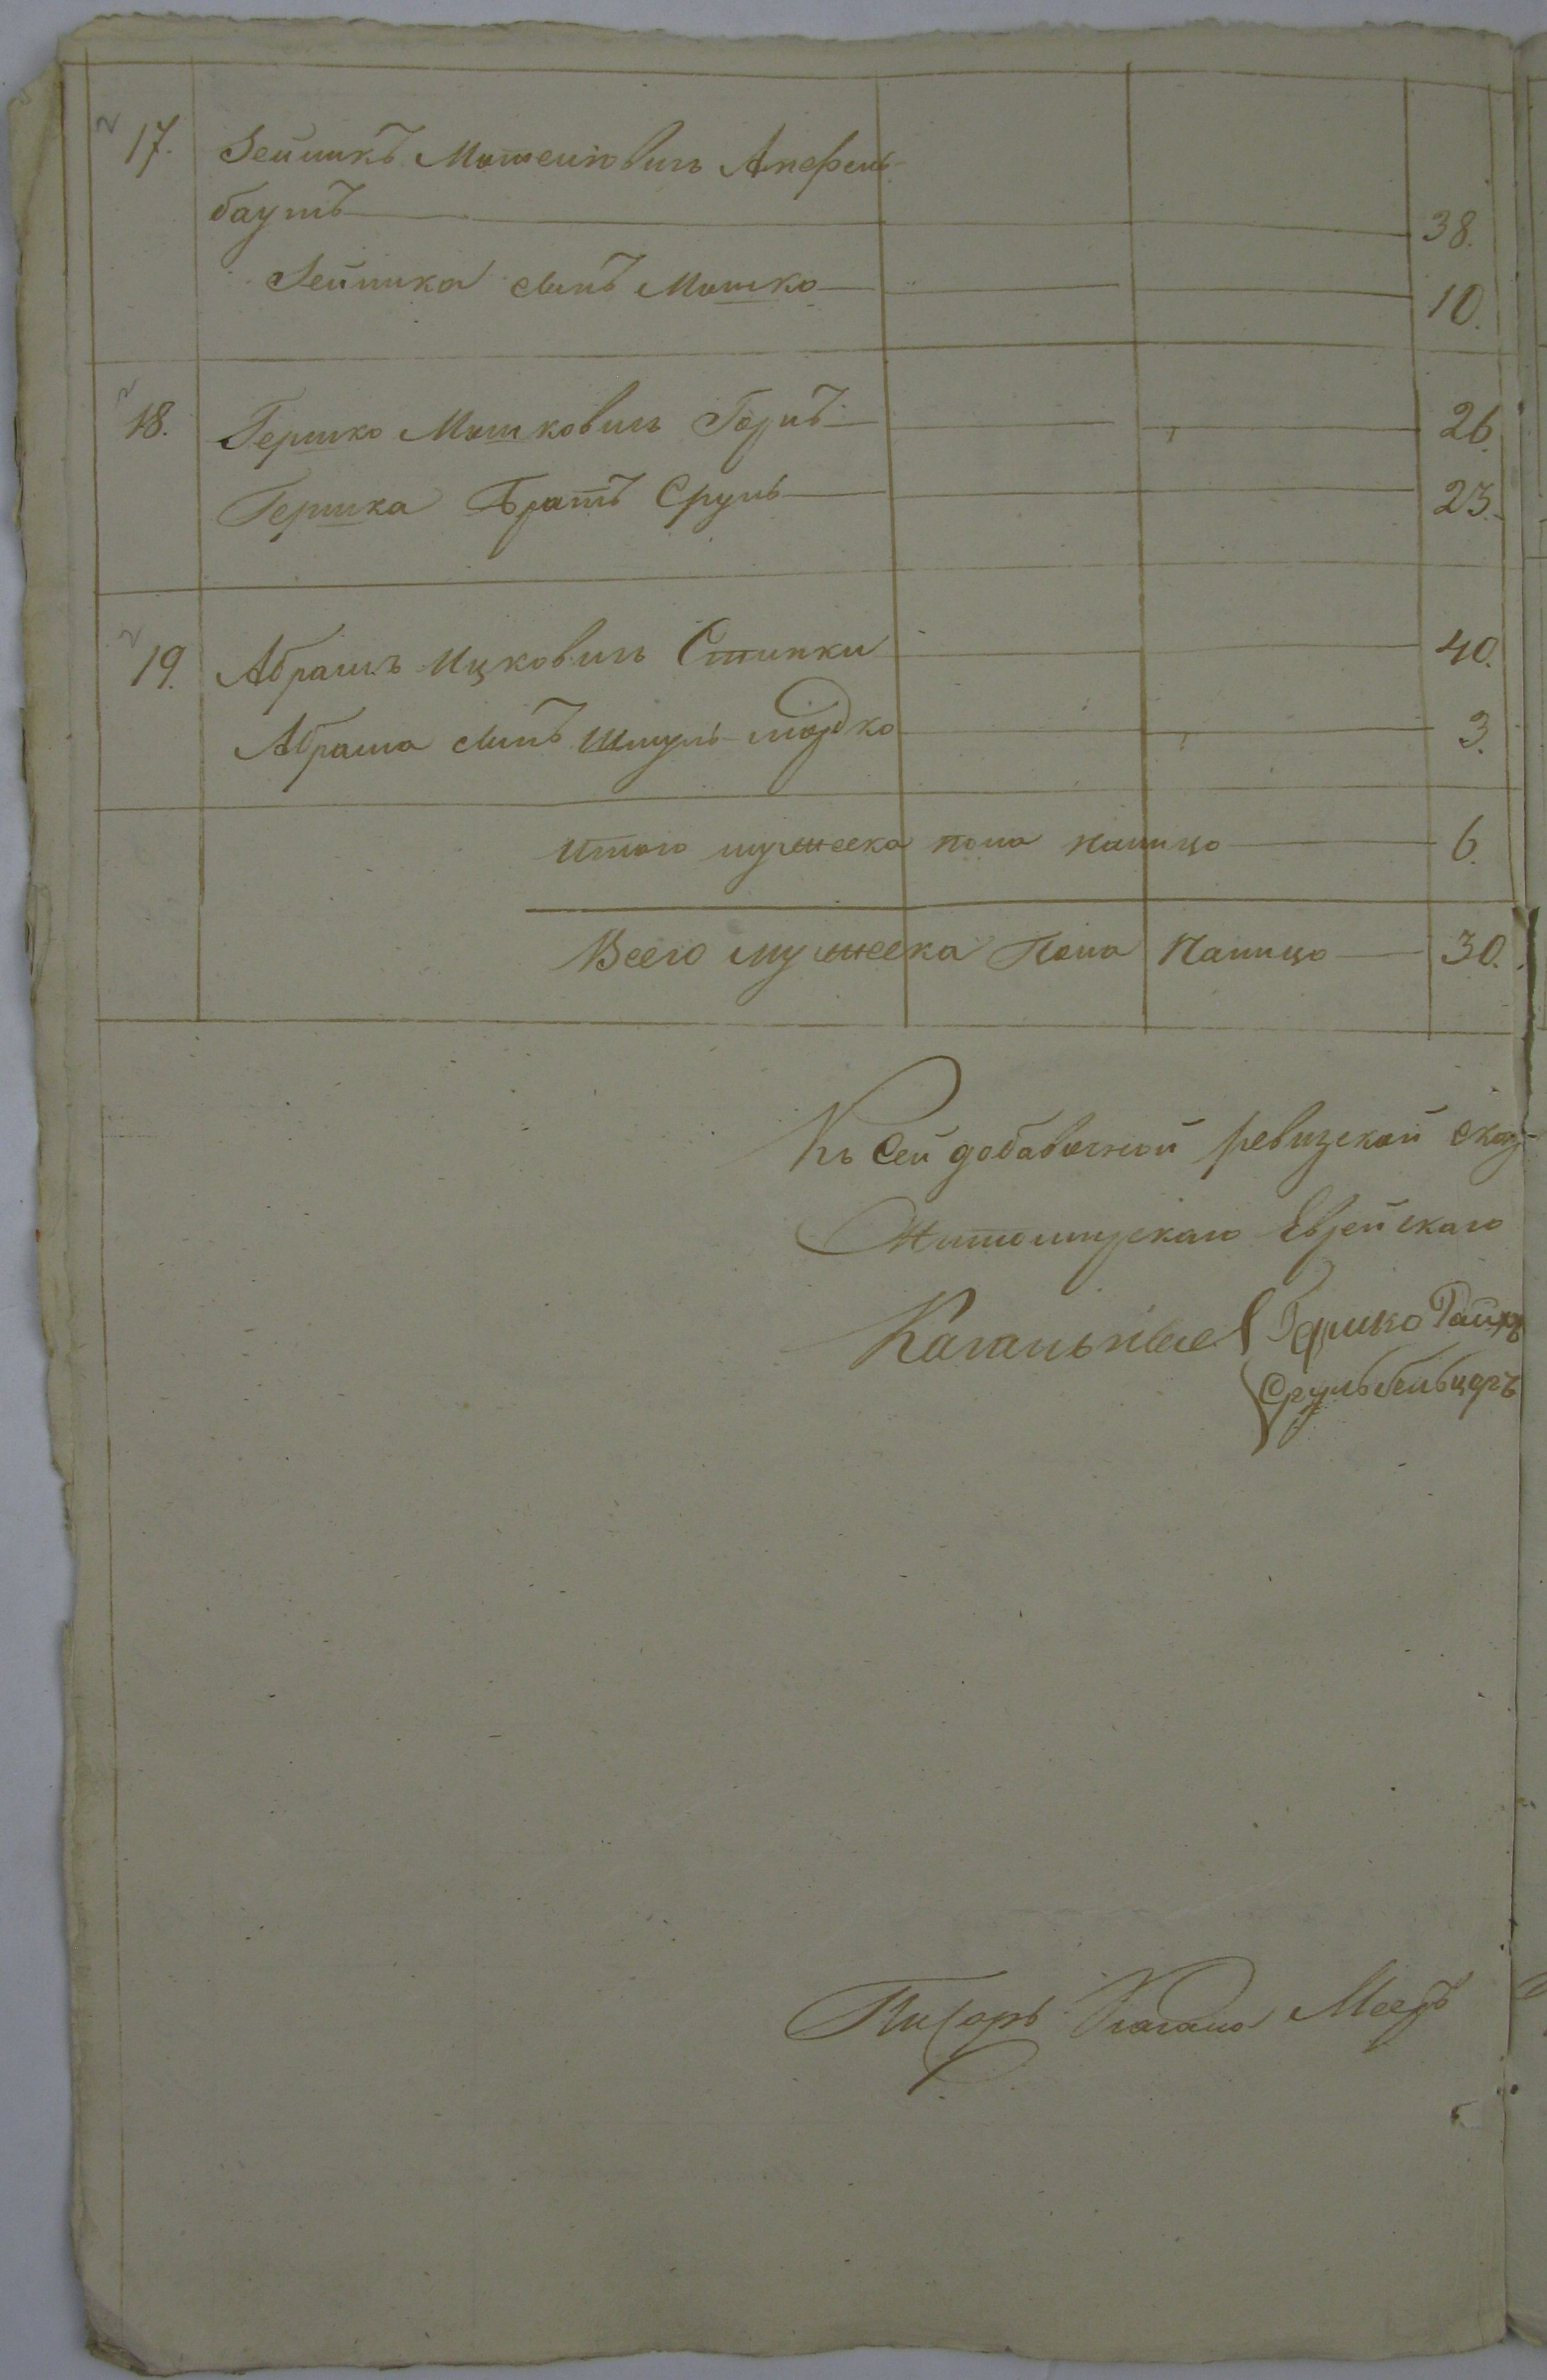 17. Зейликъ Мошковичь Апфель-
баумъ 38.
Зейлика сынъ Мошко 10.
18. Гершко Мошковичь Горнъ 26.
Гершка Братъ Сруль 23.
19. Абрамъ Ицковичь Слипки 40.
Абрама сынъ Шмуль-мордко 3.
Итого мужеска пола налицо 6.
Всего мужеска Пола Налицо 30.
Къ сей добавочной ревизской сказ-
Житомирскаго Еврейскаго
Кагальные Гершко Райхъ
Срульбельцеръ
Писарь Кагала Мееръ